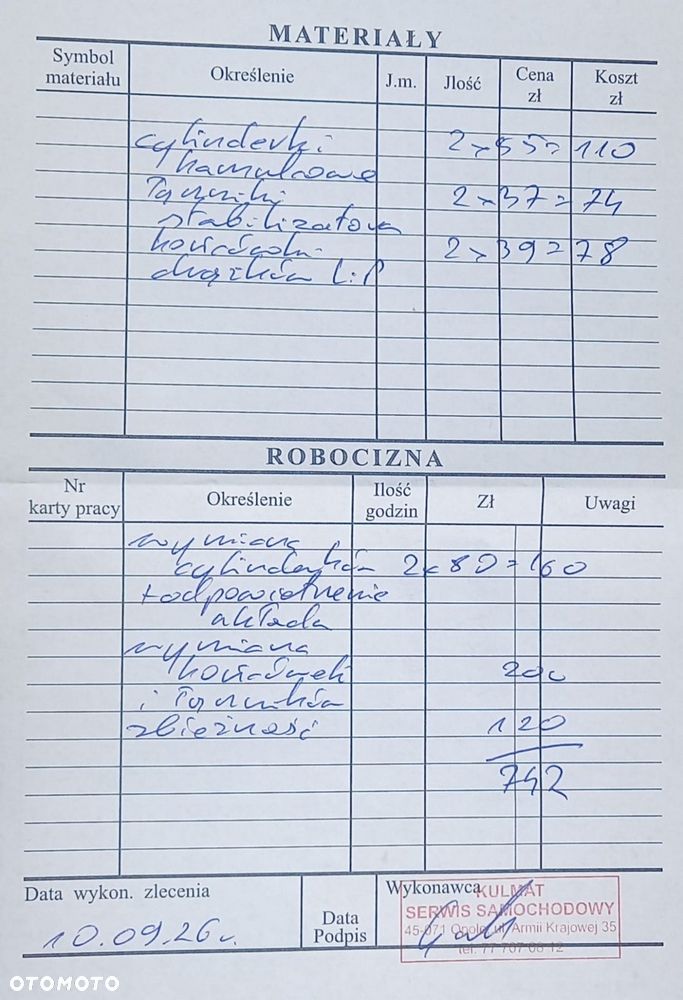 MATERIAŁY
Symbol materiału Określenie J.m. Jlość Cena zł Koszt zł
cylinderki 2 x 55 = 110
hamulcowe
łączniki 2 x 37 = 74
stabilizatora
końcówki 2 x 39 = 78
drążków L i P
ROBOCIZNA
Nr karty pracy Określenie Ilość godzin Zł Uwagi
wymiana
cylinderków 2 x 80 = 160
+ odpowietrzenie
układu
wymiana
końcówek 200
i łączników
zbieżność 120
742
Data wykon. zlecenia Data Podpis Wykonawca
10.09.26 r.
KULMAT
SERWIS SAMOCHODOWY
45-071 Opole, ul. Armii Krajowej 35
tel. 77 707 08 12
OTOMOTO